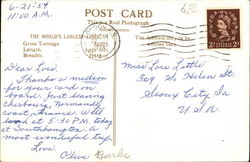 6-21-54
11:00 A.M.
POST CARD
This is a Real Photograph
THE WORLD'S LARGEST
Gross Tonnage
Length,
Breadth,
Dear Lois:
Thanks a million
for your card on
board. Just leaving
Cherbourg, Normandy
coast, France. Will
land at 5:30 P.M. today
at Southampton. A
most wonderful trip.
Love
Olive Burke
Miss Lois Little
309 So. Helen St.
Sioux City Ia
U.S.A.